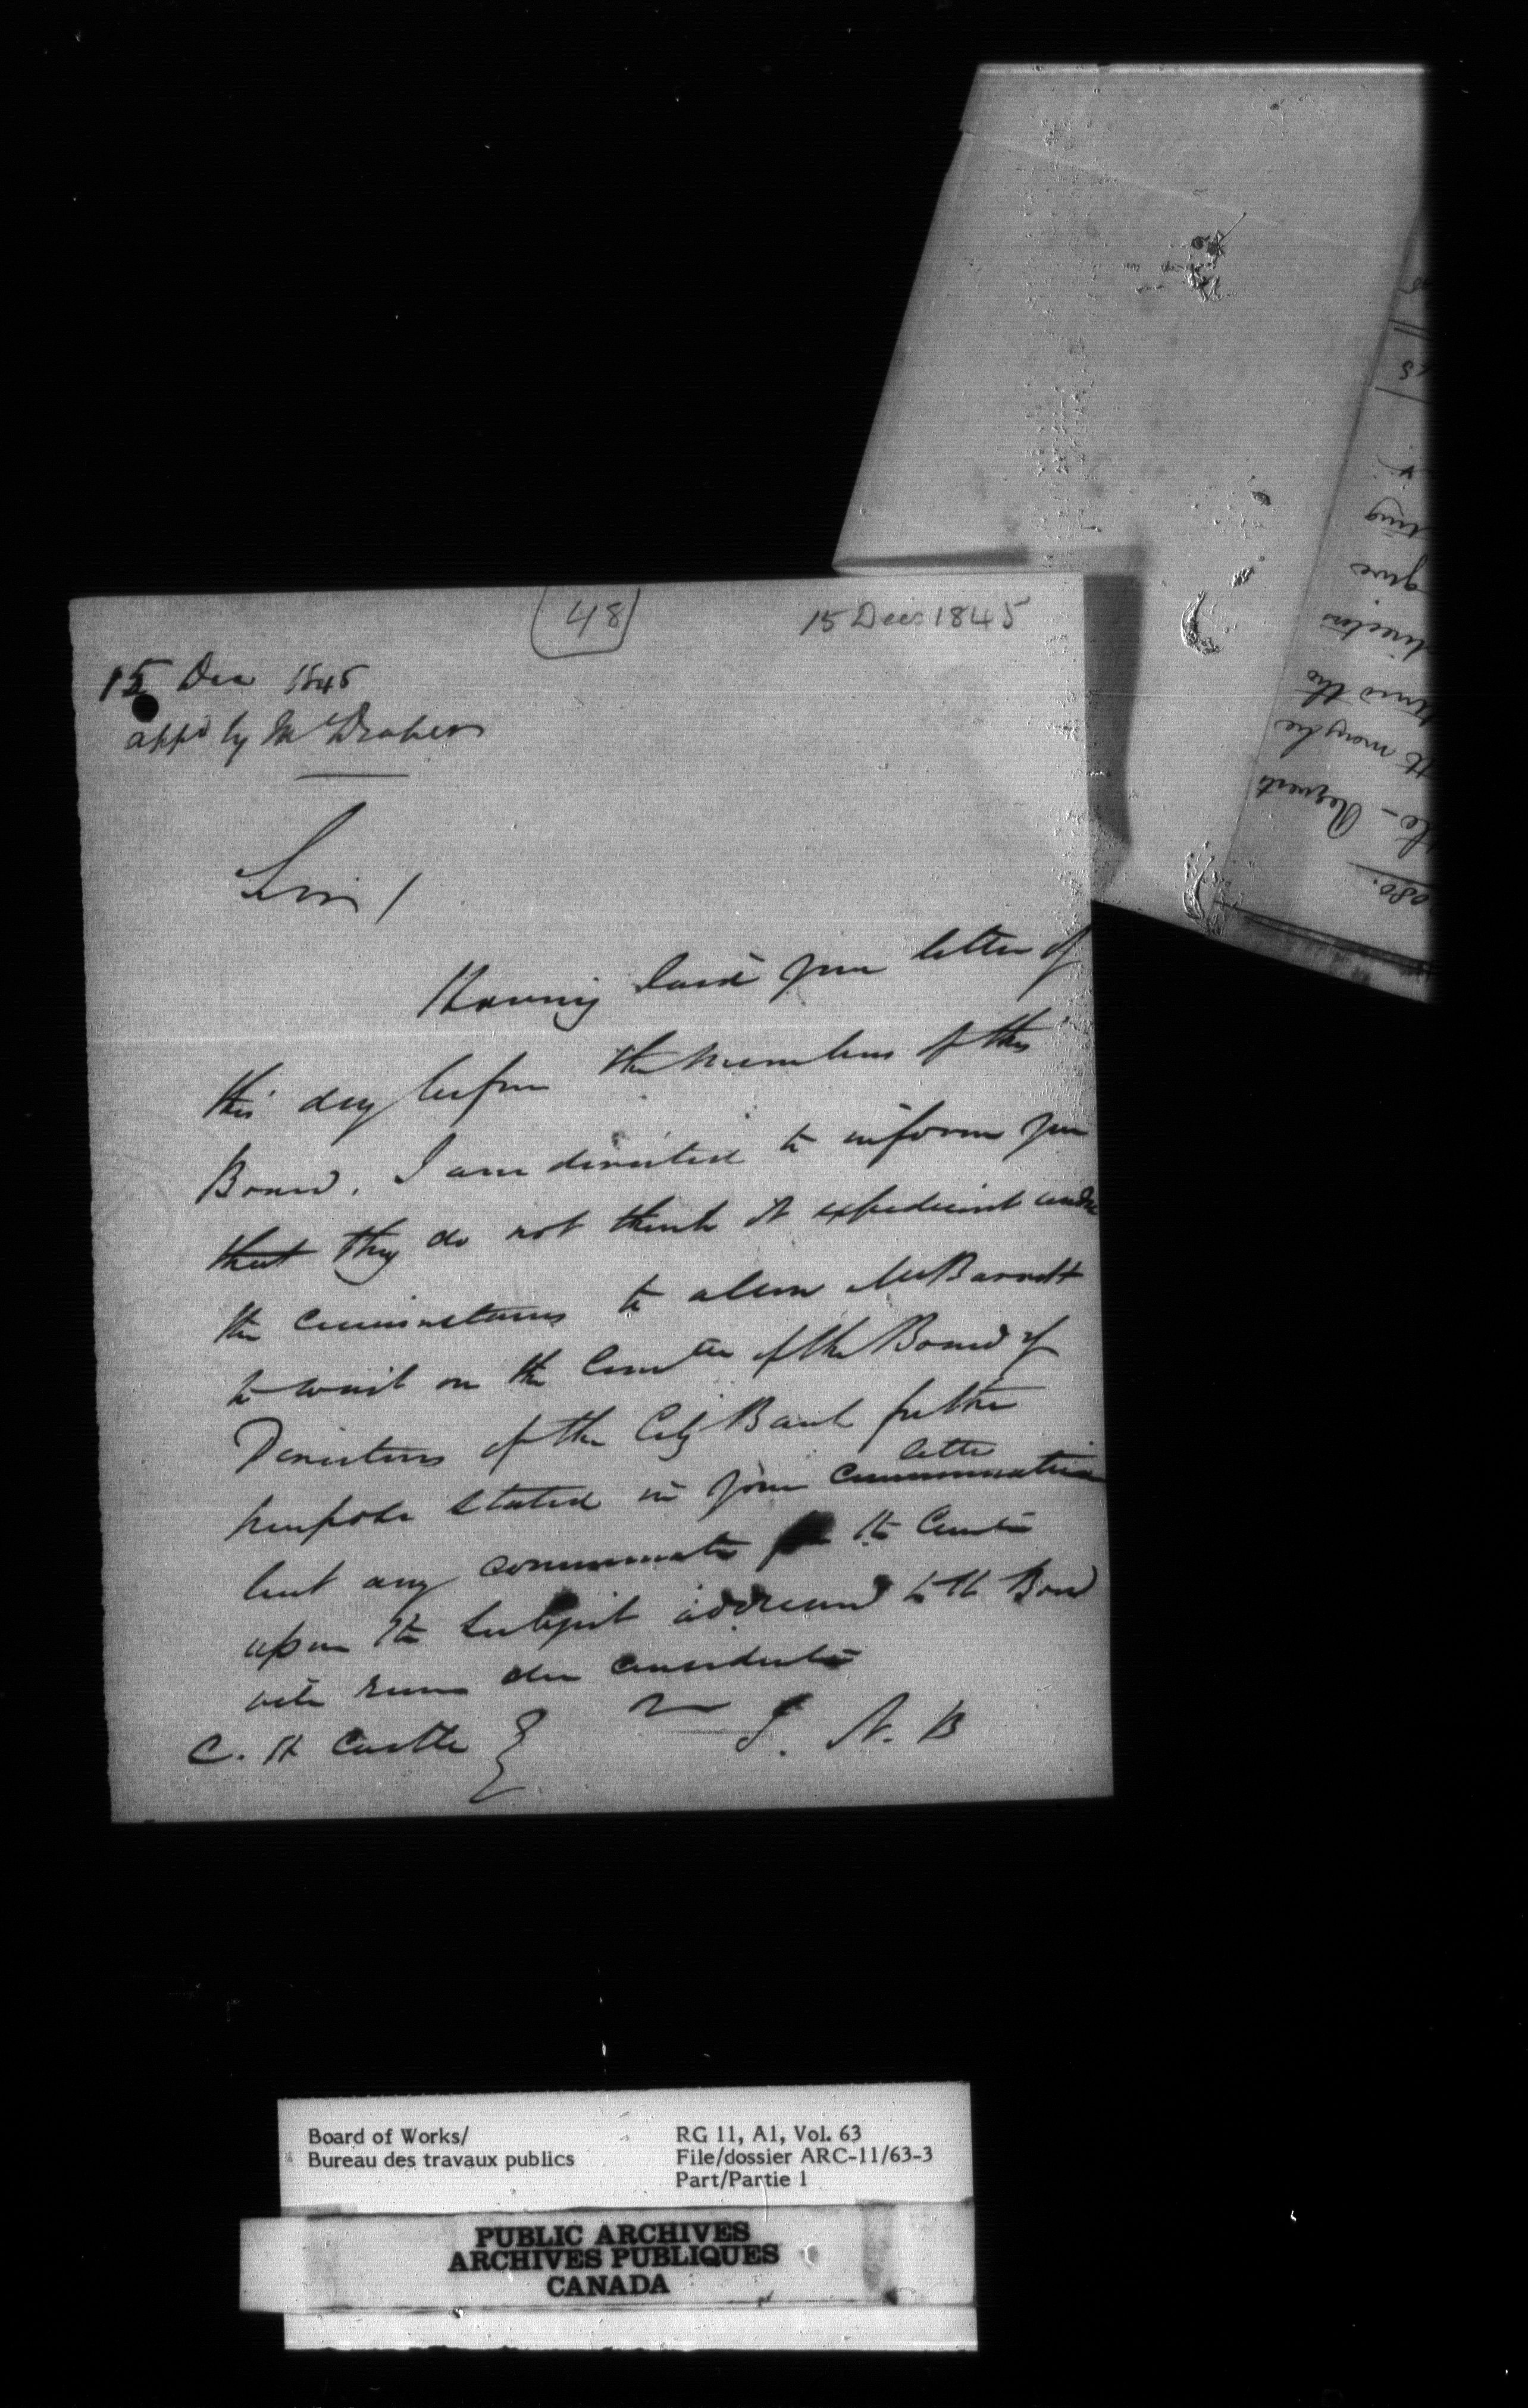 48
15 Decr 1845
15 Dec 1845
appd by Mr Draper
Sir /
Having laid your letter of
this day before the members of this
Board, I am directed to inform you
that they do not think it expedient under
the circumstances to allow Mr Barrett
to wait on the Comtee of the Board of
Directors of the City Bank for the
letter
purpose stated in your communication
but any communicatn the Comtee
upon the subject addressed to the Board
will receive due consideratn
T. A. B
C. H Castle Esq
080.
Requests
may be
and the
directors
give
Board of Works/
Bureau des travaux publics
RG 11, A1, Vol. 63
File/dossier ARC-11/63-3
Part/Partie 1
PUBLIC ARCHIVES
ARCHIVES PUBLIQUES
CANADA